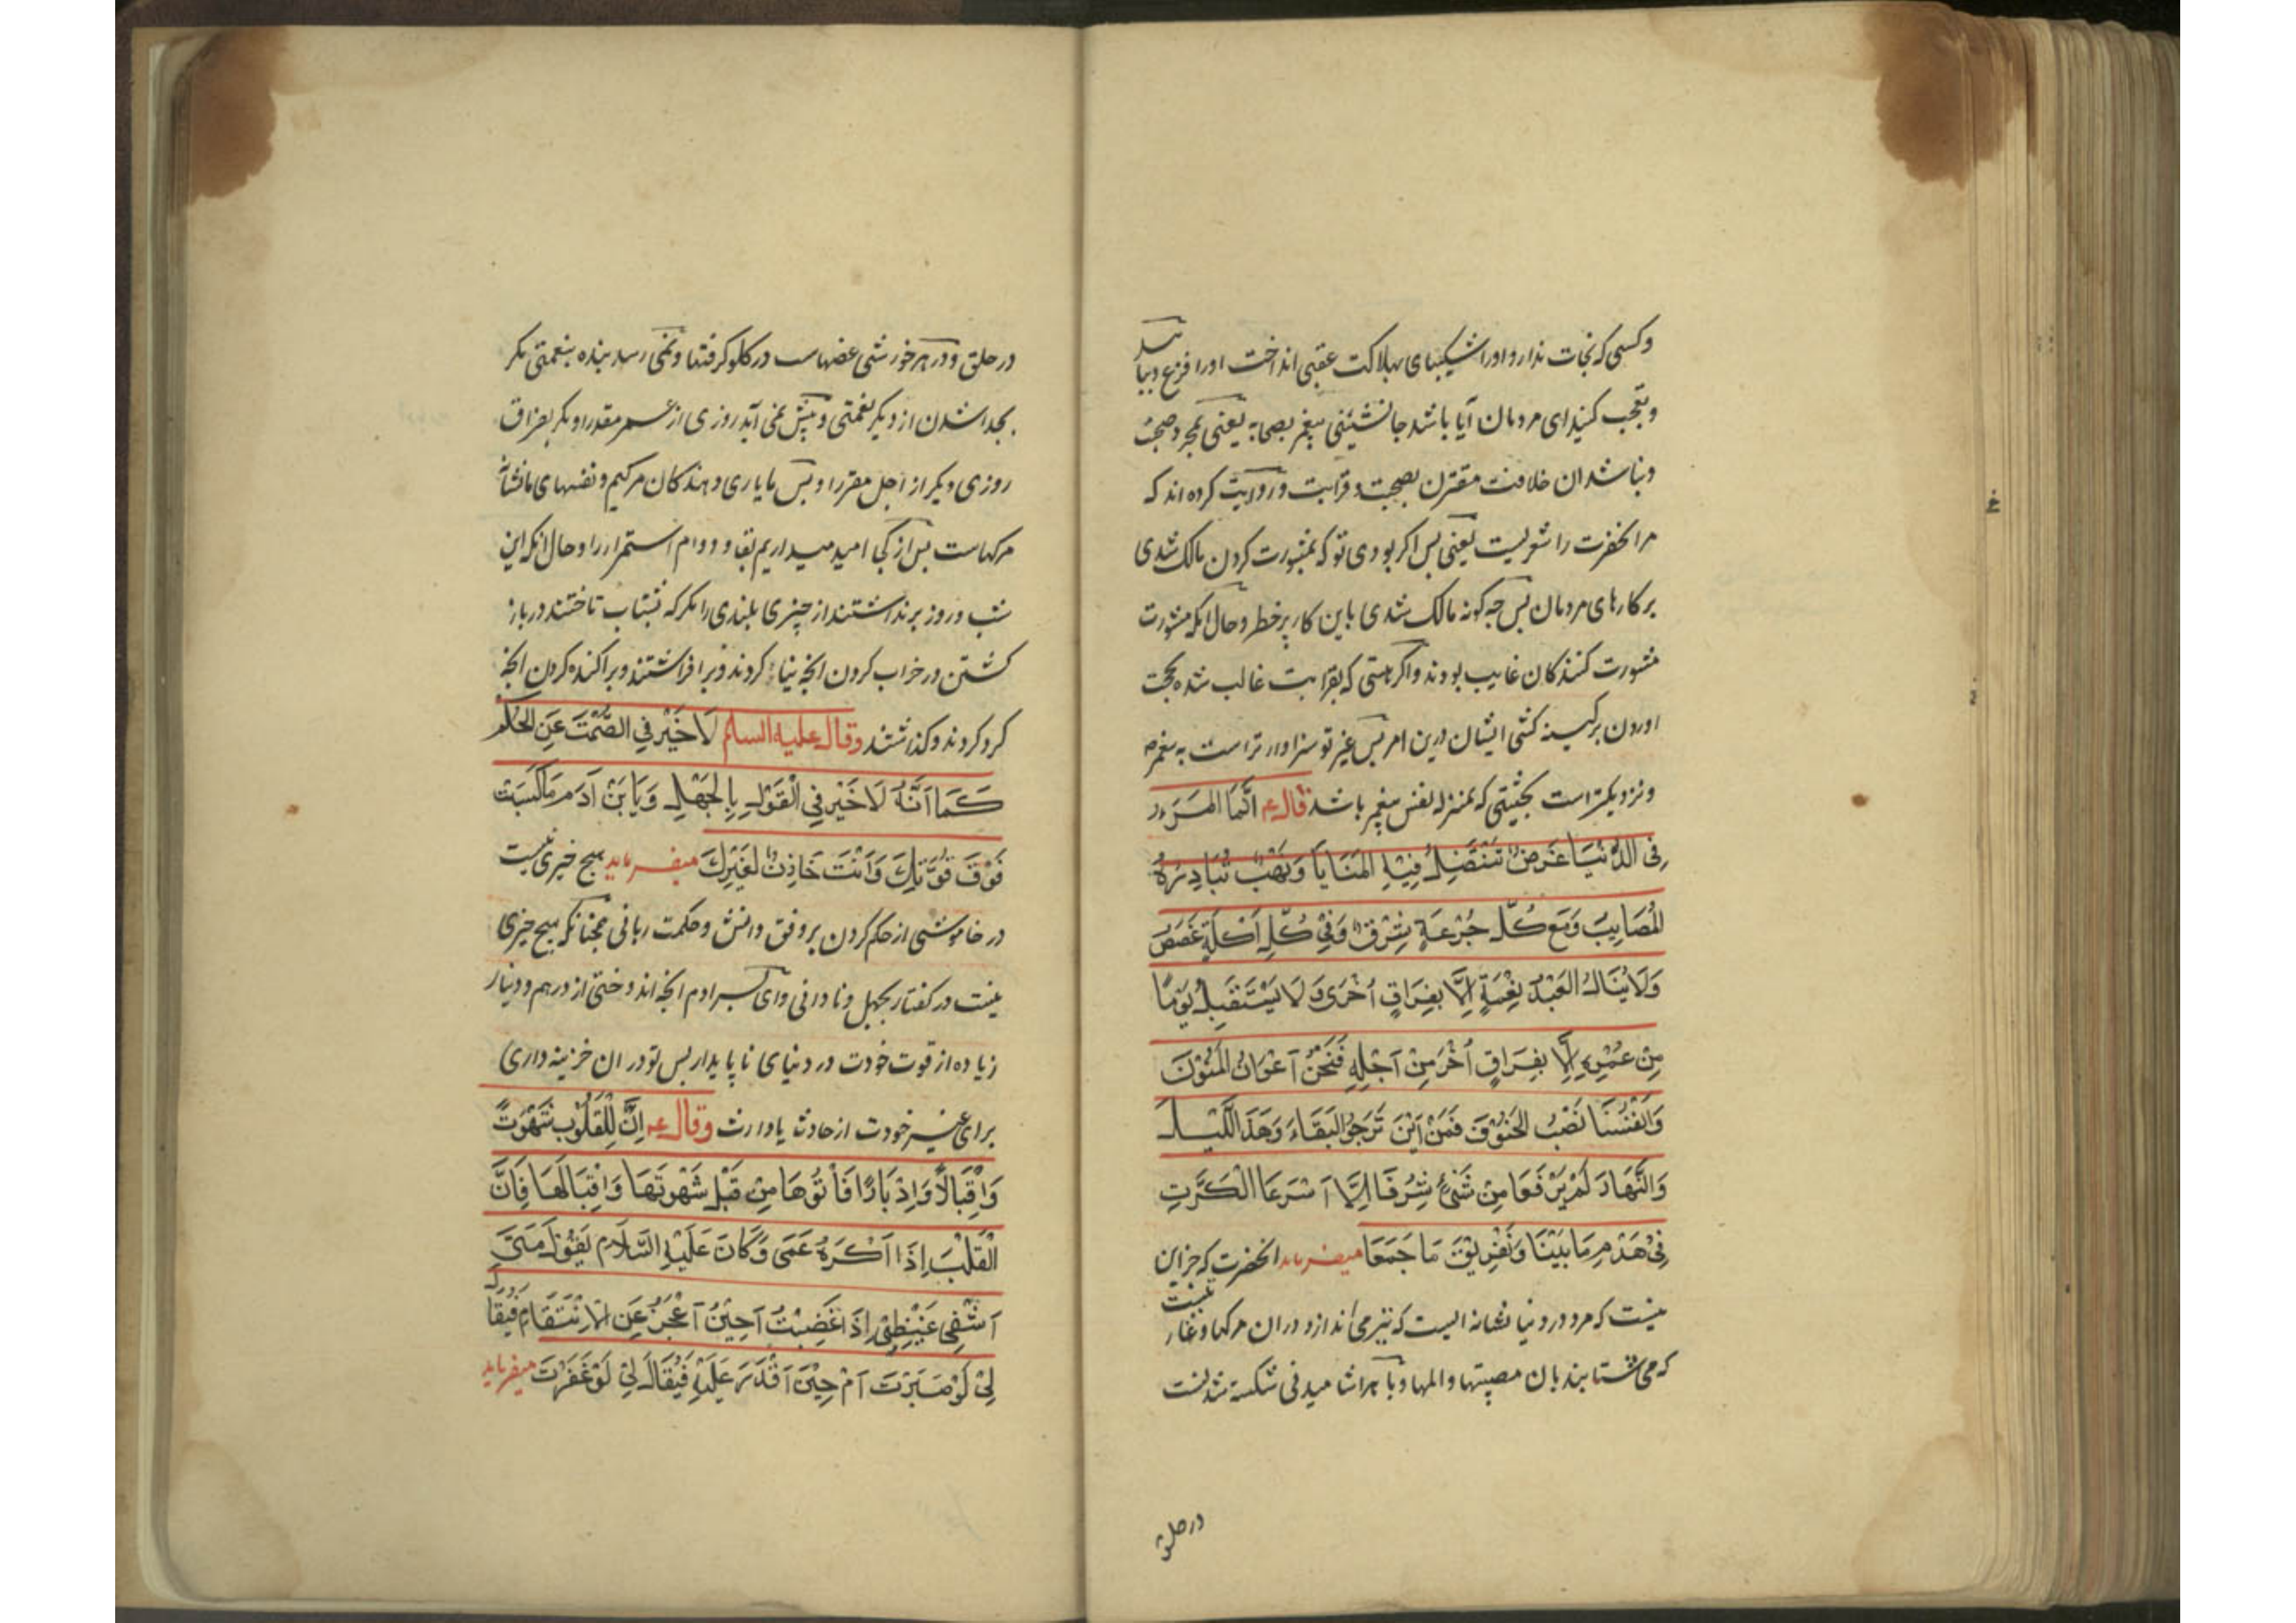 وکسی که نجات ندارد او را شکیبای بهلاکت عقبی انداخت او را فزع
وتعجب کنید ای مردمان آیا باشد جانشینی پیغمبر بصحابه یعنی بمجرد صحبت
ونباشد ان خلافت مقترن بصحبت و قرابت و روایت کرده اند که
مر انحضرت را شعریست یعنی پس اکر بودی تو که بمشورت کردن مالک شدی
بر کارهای مردمان پس چه کونه مالک شدی باین کار پرخطر و حال انکه مشورت
مشورت کنندکان غایب بودند و اکر هستی که بقرابت غالب شده بحجت
اوردن بر کینه کشی ایشان درین امر پس غیر تو سزاوار تر است به پیغمبر
ونزدیکتر است بحیثیتی که بمنزله نفس پیغمبر باشد قال ع انَّمَا المَرء
فِی الدُّنْیَا غَرَضٌ تَنْتَضِلُ فِیْهِ المَنَایَا وَنَهْبٌ تُبَادِرُهُ
المُصَایِبُ وَمَعَ كُلِّ جُرْعَةٍ شَرَقٌ وَفِیْ كُلِّ اَكْلَةٍ غَصَصٌ
وَلَایَنَالُ العَبْدُ نِعْمَةً اِلَّا بِفِرَاقِ اُخْرَی وَ لَا یَسْتَقْبِلُ یَوْمًا
مِنْ عُمُرِهِ اِلَّا بِفِرَاقِ اُخَرَ مِنْ اَجَلِهِ فَنَحْنُ اَعْوَانُ المَنُوْنَ
وَاَنْفُسُنَا نَصْبُ الحُتُوْفِ فَمِنْ اَیْنَ نَرْجُو البَقَاءَ وَهَذَ اللَّیْلُ
وَالنَّهَارُ لَمْ یَرْفَعَا مِنْ شَیْءٍ شَرَفًا اِلَّا اَسْرَعَا الْكَرَّتِ
فِیْ هَدْمِ مَا بَیْنَا وَتَفْرِیْقِ مَا جَمَعَا میفرماید انحضرت که جز این
نیست که مرد در دنیا نشانه ایست که تیر می اندازد در ان مرکها و غارت
که می شتابند بان مصیبتها والمها و با هر اشامیدنی شکسته شدنست
در حلق
در حلق و در هر خورشی غضهاست در کلو کرفتها ونمی رسد بنده بنعمتی مکر
بجدا شدن از دیکر نعمتی و پیش نمی آید روزی از عمر مقدر او مکر بفراق
روزی دیکر از اجل مقرر او پس ما یاری دهندکان مرکیم و نفسهای ما نشانه
مرکهاست پس از کجا امید میداریم بقا و دوام استمرار را و حال انکه این
شب و روز بر نداشتند از چیزی بلندی را مکر که بشتاب تاختند در باز
کشتن در خراب کردن انچه بنیاد کردند و برافراشتند و پراکنده کردن انچه
کرد کردند و کذاشتند وقال علیه السلم لَا خَیْرَ فِی الصُّمْتِ عَنِ الحُكْمِ
كَمَا اَنَّهُ لَا خَیْرَ فِی الْقَوْلِ بِالجَهْلِ وَ یَا بْنَ ادَمَ مَا كَسَبْتَ
فَوْقَ قُوَّتِكَ وَاَنْتَ خَازِنٌ لِغَیْرِكَ میفرماید هیچ خیری نیست
در خاموشی از حکم کردن بر وفق دانش و حکمت ربانی همچنانکه هیچ خیری
نیست در کفتار بجهل و نادانی و ای پسر ادم انچه اندوختی از درهم و دینار
زیاده از قوت خودت در دنیای ناپایدار پس تو در ان خزینه داری
برای غیر خودت از حادث یا وارث وقال ع اِنَّ لِلْقُلُوْبِ شَهْوَتً
وَاِقْبَالًا وَاِدْبَارًا فَاْتُوْهَا مِنْ قِبَلِ شَهْوَتِهَا وَاِقْبَالِهَا فَاِنَّ
الْقَلْبَ اِذَا اُكْرِهَ عَمَی وَكَانَ عَلَیْهِ السَّلَامُ یَقُوْلُ مَتَی
اَشْفِی غَیْظِیْ اِذَا غَضِبْتُ اَحِیْنَ اَعْجَزُ عَنِ الاِنْتِقَامِ فَیُقَالَ
لِیْ لَوْ صَبَرْتَ اَمْ حِیْنَ اَقْدِرُ عَلَیْهِ فَیُقَالَ لِیْ لَوْ غَفَرْتَ میفرماید